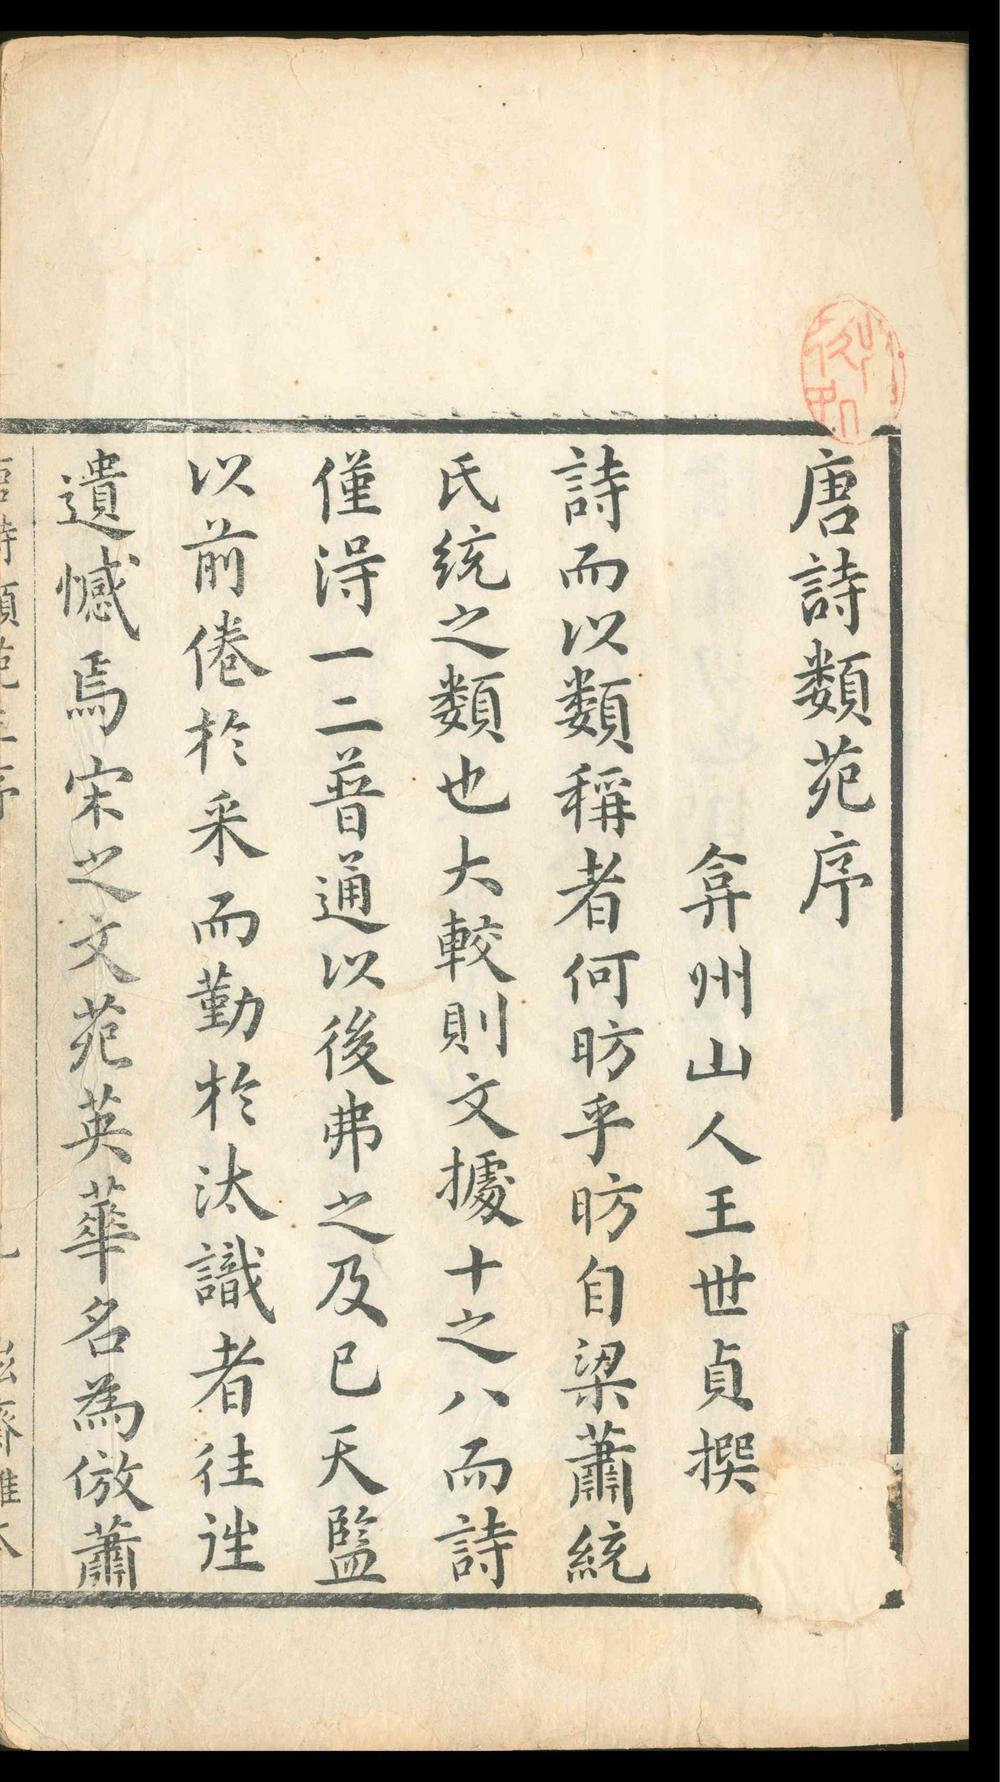 唐詩類苑序
弇州山人王世貞撰
詩而以類稱者何昉乎昉自梁蕭統
氏統之類也大較則文據十之八而詩
僅得一二普通以後弗之及已天監
以前倦於采而勤於汰識者往往
遺憾焉宋之文苑英華名為倣蕭
唐詩類苑王序